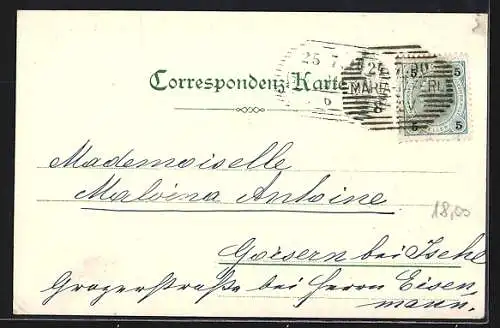 25 7 24 7 00
Correspondenz-Karte
MARIAZELL
6 8
5 5
5 5
Mademoiselle
Malvina Antoine
18,00
Goisern bei Ischl
Grazerstraße bei Herrn Eisen-
mann.